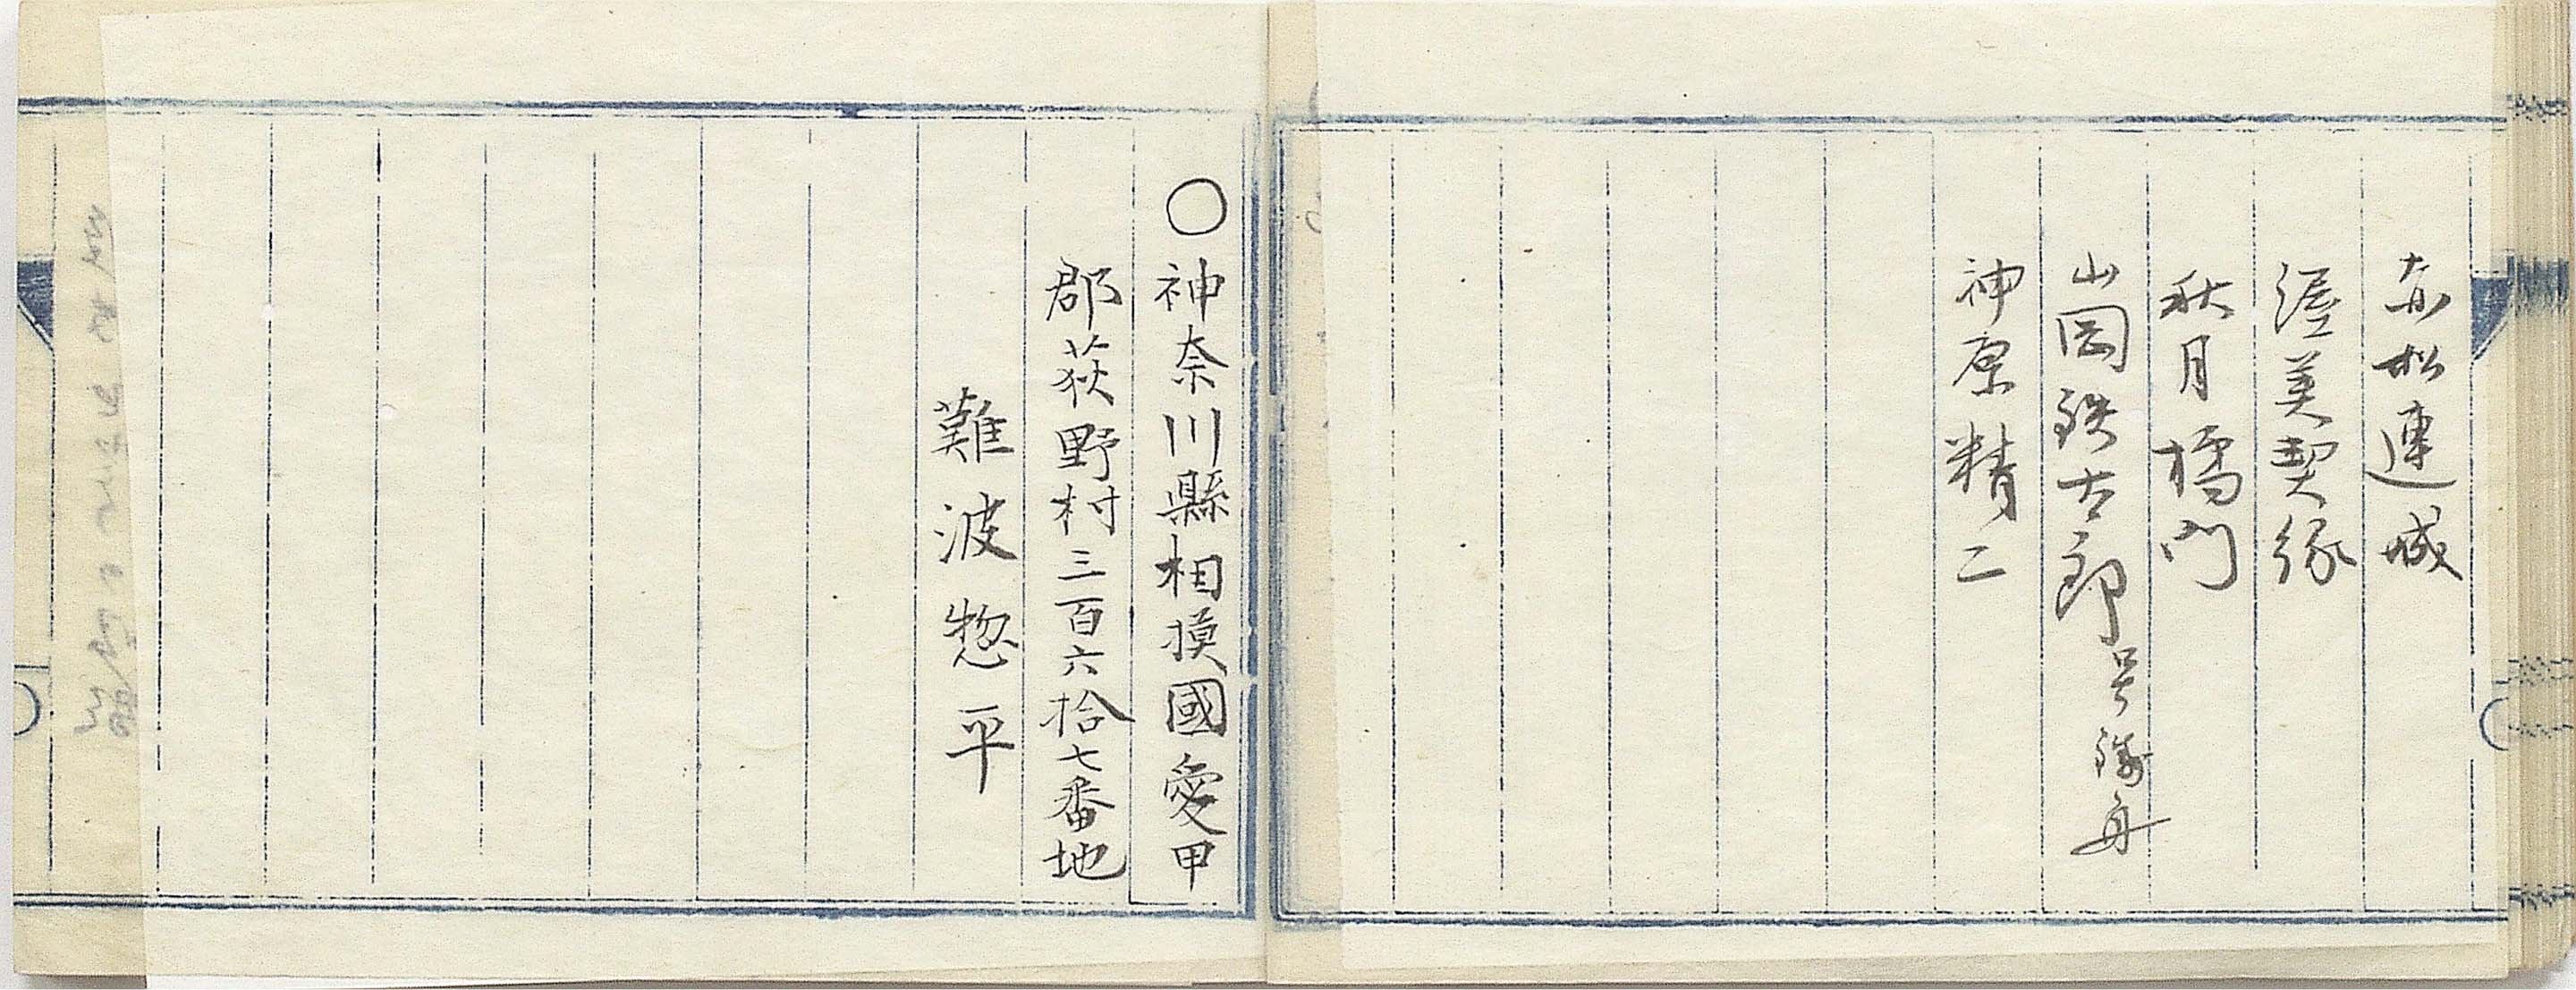 赤松連城
渥美契縁
秋月橘門
山岡鉄太郎号鐵舟
神原精二
〇神奈川縣相摸國愛甲
郡荻野村三百六拾七番地
難波惣平